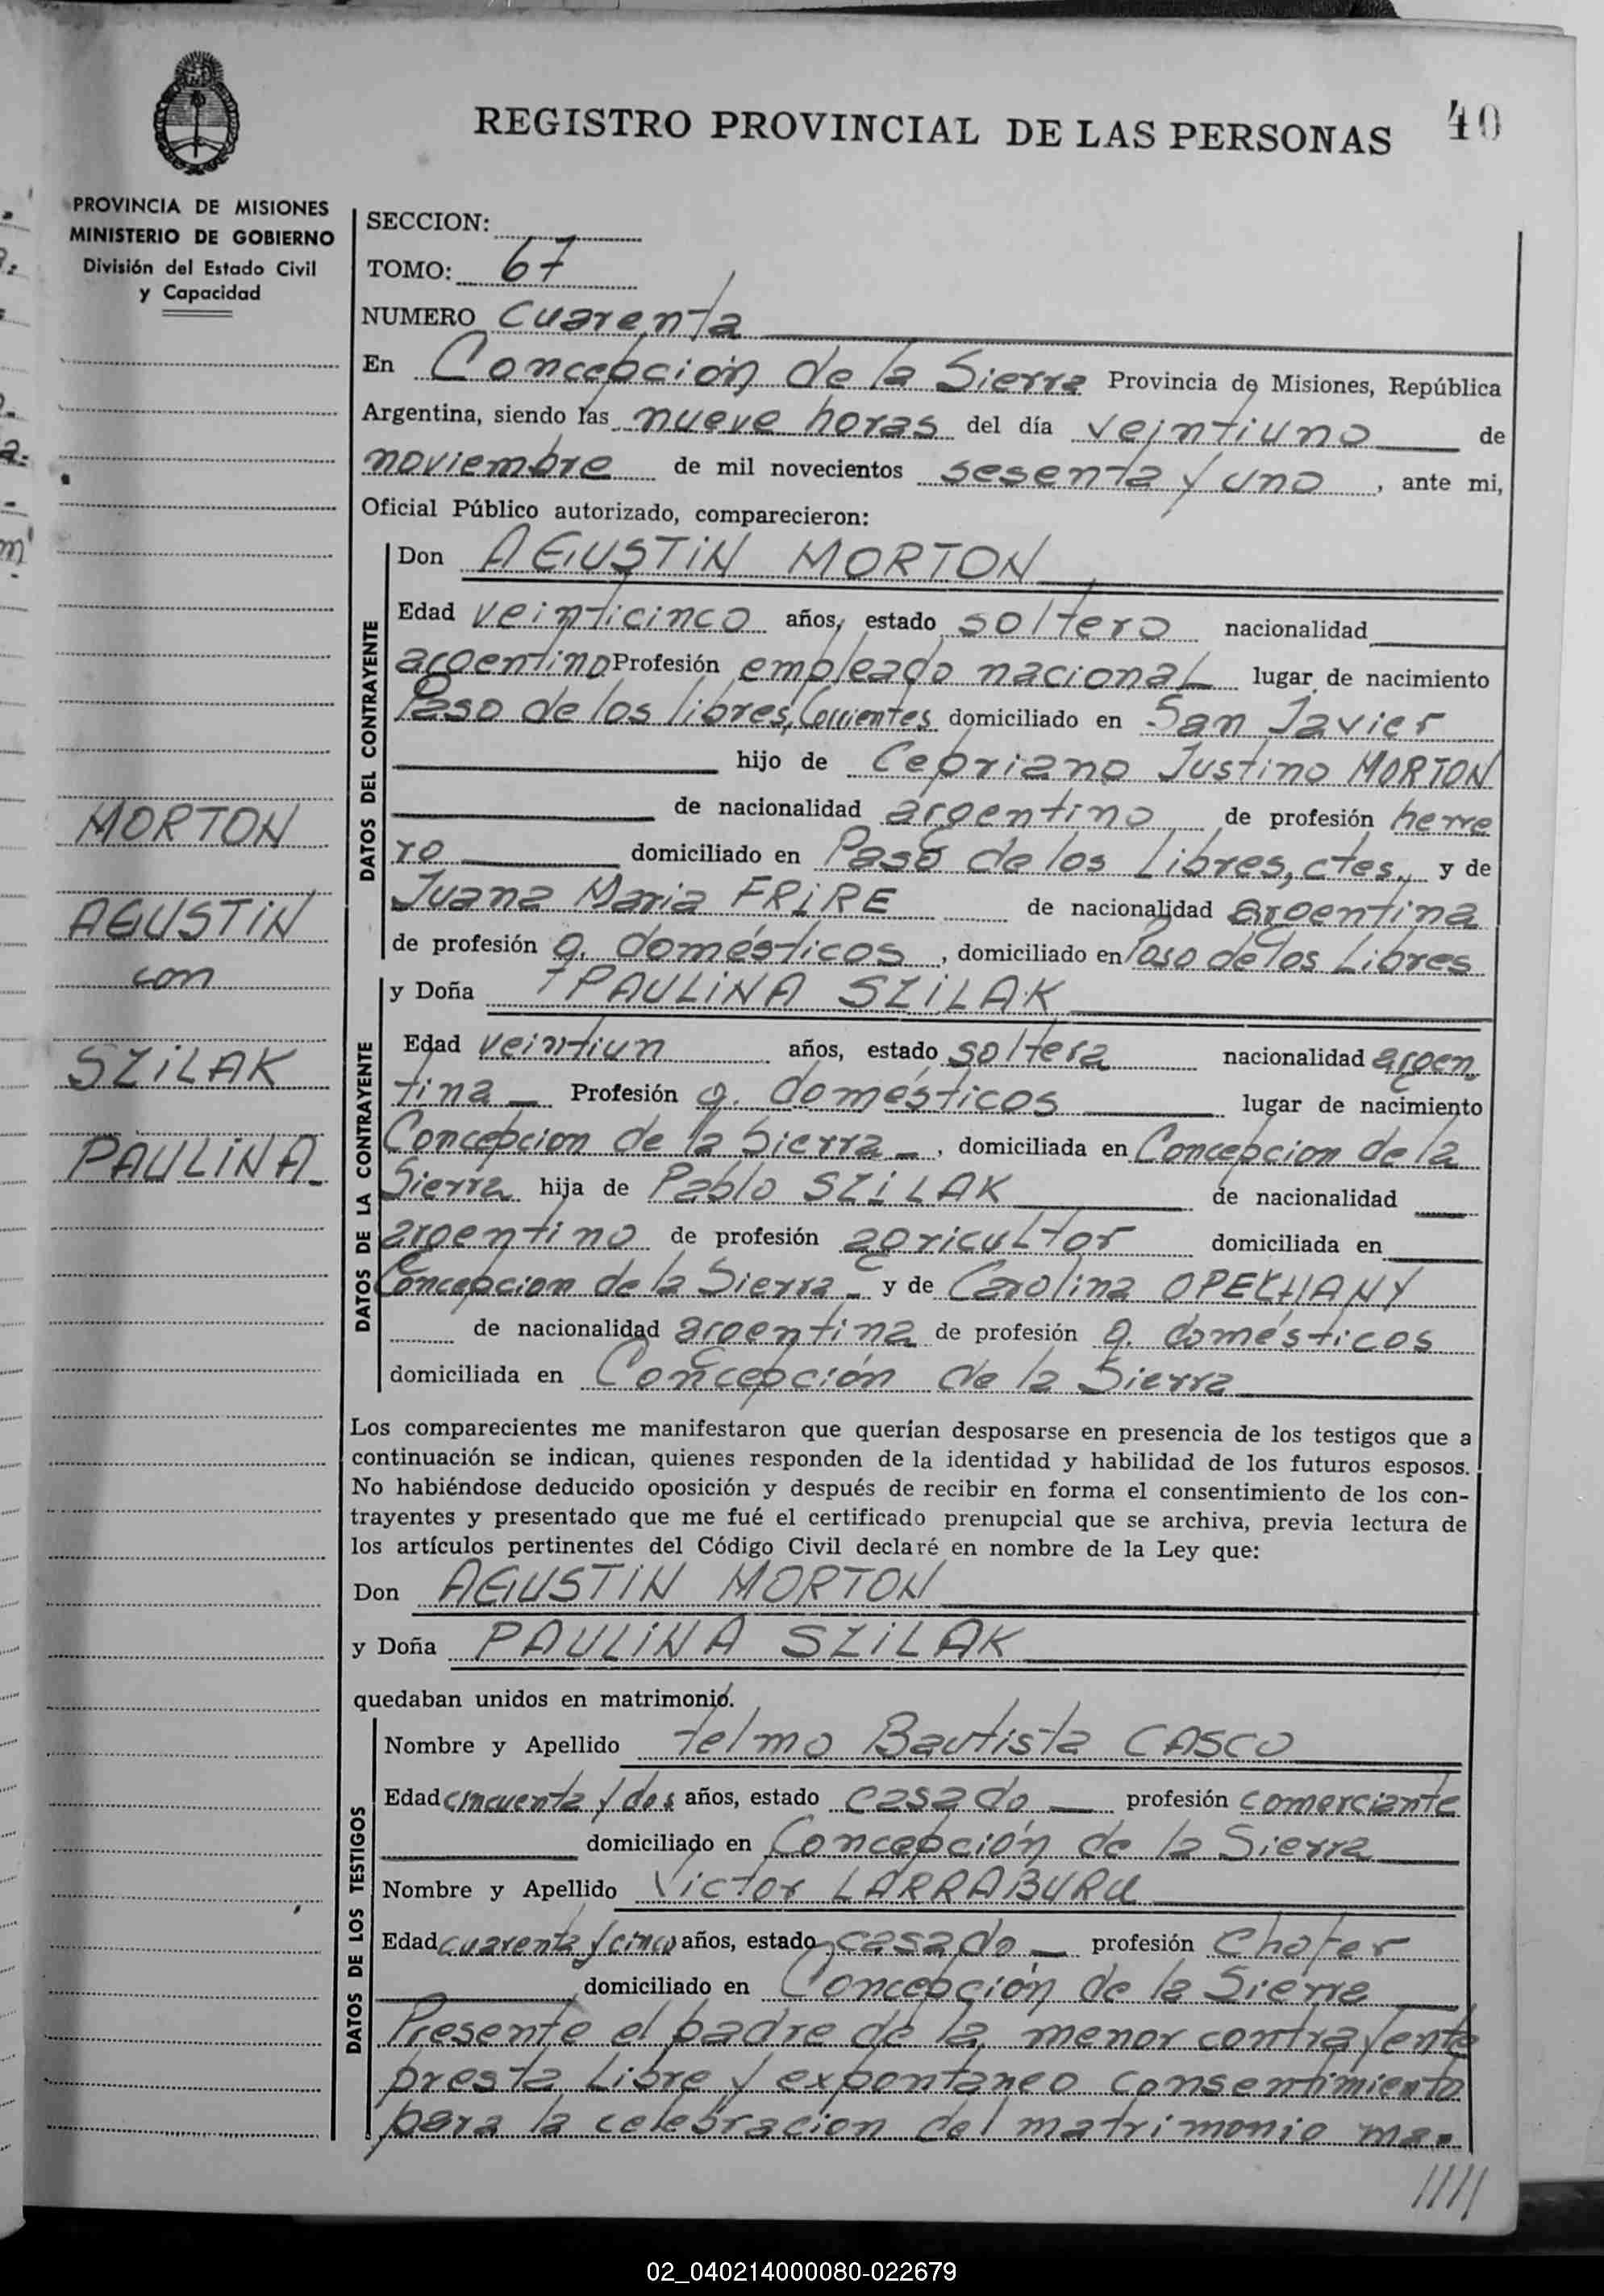 REGISTRO PROVINCIAL DE LAS PERSONAS 40
PROVINCIA DE MISIONES
MINISTERIO DE GOBIERNO
División del Estado Civil
y Capacidad
MORTON
AGUSTIN
con
SZILAK
PAULINA
SECCION:
TOMO: 67
NUMERO Cuarenta
En Concepción de la Sierra Provincia de Misiones, República
Argentina, siendo las nueve horas del día veintiuno de
noviembre de mil novecientos sesenta y uno, ante mi,
Oficial Público autorizado, comparecieron:
DATOS DEL CONTRAYENTE
Don AGUSTIN MORTON
Edad veinticinco años, estado soltero nacionalidad
argentino Profesión empleado nacional lugar de nacimiento
Paso de los libres, Corrientes domiciliado en San Javier
hijo de Cepriano Justino MORTON
de nacionalidad argentino de profesión herre
ro domiciliado en Paso de los Libres, ctes. y de
Juana Maria FRIRE de nacionalidad argentina
de profesión q. domésticos, domiciliado en Paso de los Libres
DATOS DE LA CONTRAYENTE
y Doña PAULINA SZILAK
Edad veintiun años, estado soltera nacionalidad argen
tina - Profesión q. domésticos lugar de nacimiento
Concepcion de la Sierra -, domiciliada en Concepcion de la
Sierra hija de Pablo SZILAK de nacionalidad
argentino de profesión agricultor domiciliada en
Concepcion de la Sierra - y de Carolina
de nacionalidad argentina de profesión q. domésticos
domiciliada en Concepción de la Sierra
Los comparecientes me manifestaron que querían desposarse en presencia de los testigos que a
continuación se indican, quienes responden de la identidad y habilidad de los futuros esposos.
No habiéndose deducido oposición y después de recibir en forma el consentimiento de los con-
trayentes y presentado que me fué el certificado prenupcial que se archiva, previa lectura de
los artículos pertinentes del Código Civil declaré en nombre de la Ley que:
Don AGUSTIN MORTON
y Doña PAULINA SZILAK
quedaban unidos en matrimonio.
DATOS DE LOS TESTIGOS
Nombre y Apellido Telmo Bautista CASCO
Edad cincuenta y dos años, estado casado - profesión comerciante
domiciliado en Concepción de la Sierra
Nombre y Apellido Victor LARRABURU
Edad cuarenta y cinco años, estado casado - profesión Chofer
domiciliado en Concepción de la Sierra
Presente el padre de la menor contrayente
presta libre y expontaneo consentimiento
para la celebracion del matrimonio ma-
/////
02_040214000080-022679